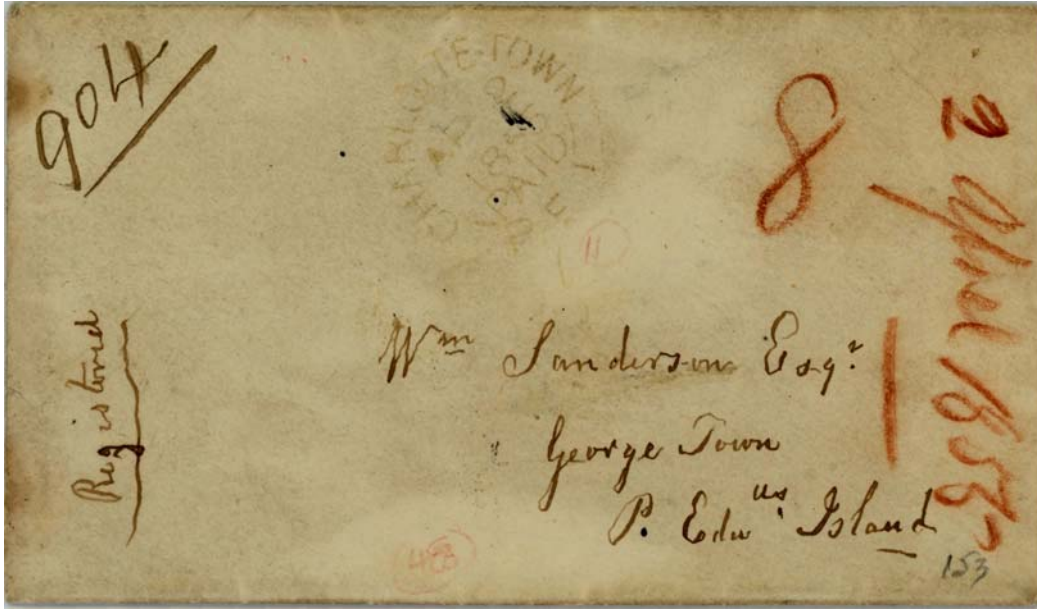 904
CHARLOTTE-TOWN
PAID
8
2 April 1853
11
Registered
Wm Sanderson Esqr
George Town
P. Edwus Island
48
153